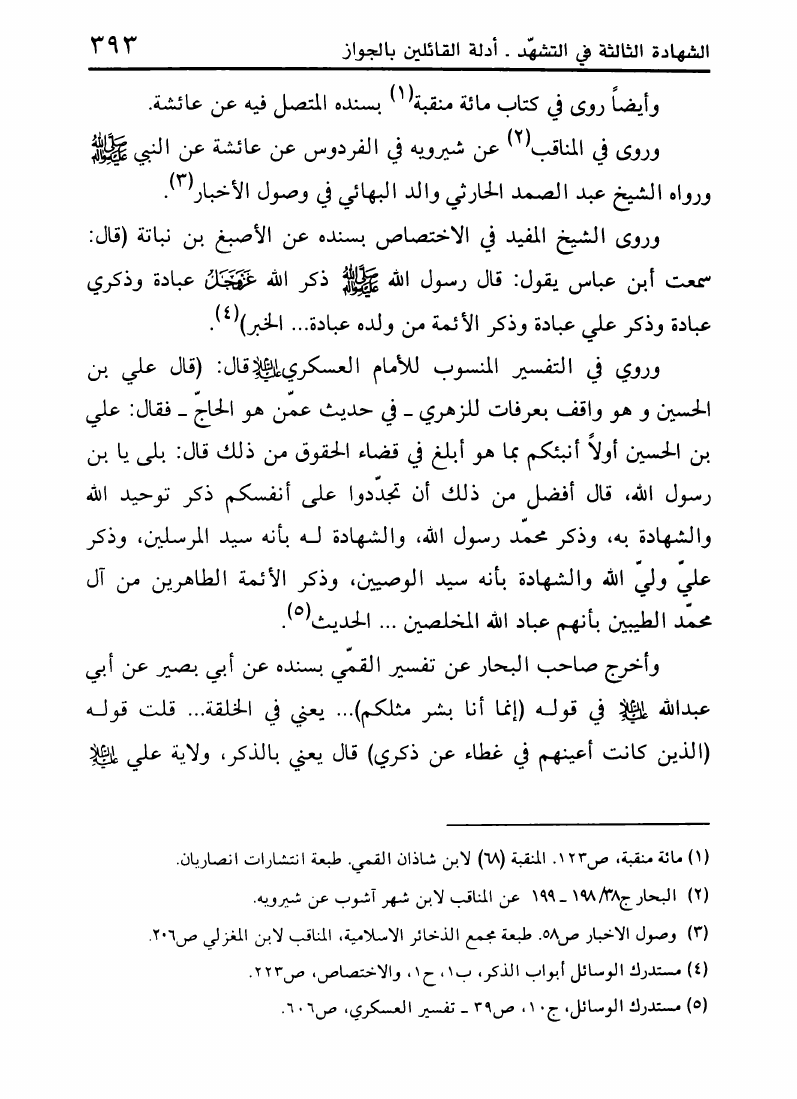 الشهادة الثالثة في التشهّد . أدلة القائلين بالجواز ٣٩٣
وأيضاً روى في كتاب مائة منقبة(١) بسنده المتصل فيه عن عائشة.
وروى في المناقب(٢) عن شيرويه في الفردوس عن عائشة عن النبي ﷺ
ورواه الشيخ عبد الصمد الحارثي والد البهائي في وصول الأخبار(٣).
وروى الشيخ المفيد في الاختصاص بسنده عن الأصبغ بن نباتة (قال:
سمعت أبن عباس يقول: قال رسول الله ﷺ ذكر الله عَزَّوَجَلَّ عبادة وذكري
عبادة وذكر علي عبادة وذكر الأئمة من ولده عبادة... الخبر)(٤).
وروي في التفسير المنسوب للأمام العسكري عليه السلام قال: (قال علي بن
الحسين و هو واقف بعرفات للزهري ـ في حديث عمّن هو الحاجّ ـ فقال: علي
بن الحسين أولاً أنبئكم بما هو أبلغ في قضاء الحقوق من ذلك قال: بلى يا بن
رسول الله، قال أفضل من ذلك أن تجدّدوا على أنفسكم ذكر توحيد الله
والشهادة به، وذكر محمّد رسول الله، والشهادة لـه بأنه سيد المرسلين، وذكر
عليّ وليّ الله والشهادة بأنه سيد الوصيين، وذكر الأئمة الطاهرين من آل
محمّد الطيبين بأنهم عباد الله المخلصين ... الحديث(٥).
وأخرج صاحب البحار عن تفسير القمّي بسنده عن أبي بصير عن أبي
عبدالله عليه السلام في قولـه (إنما أنا بشر مثلكم)... يعني في الخلقة... قلت قولـه
(الذين كانت أعينهم في غطاء عن ذكري) قال يعني بالذكر، ولاية علي عليه السلام
(١) مائة منقبة، ص١٢٣. المنقبة (٦٨) لابن شاذان القمي. طبعة انتشارات انصاريان.
(٢) البحار ج١٩٨/٣٨ ـ ١٩٩ عن المناقب لابن شهر آشوب عن شيرويه.
(٣) وصول الاخبار ص٥٨. طبعة مجمع الذخائر الاسلامية، المناقب لابن المغزلي ص٢٠٦.
(٤) مستدرك الوسائل أبواب الذكر، ب١، ح١، والاختصاص، ص٢٢٣.
(٥) مستدرك الوسائل، ج١٠، ص٣٩ ـ تفسير العسكري، ص٦٠٦.